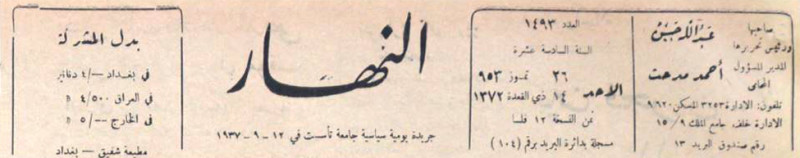 صاحبها
ورئيس تحريرها
عبد الله حسن
المدير المسؤول
المحامي
أحمد مدحت
تلفون: الادارة ٣٢٥٣ المسكن ٩٦٢٠
الادارة خلف جامع الملك ١٥/٩
رقم صندوق البريد ١٣
العدد ١٤٩٣
السنة السادسة عشرة
الاحد
٢٦ تموز ٩٥٣
١٤ ذي القعدة ١٣٧٢
ثمن النسخة ١٢ فلسا
مسجلة بدائرة البريد برقم (١٠٤)
النهار
جريدة يومية سياسية جامعة تأسست في ١٢-٩-١٩٣٧
بدل المشركة
في بغداد —/٤ دنانير
في العراق ٤/٥٠٠ »
في الخارج —/٥ »
مطبعة شفيق - بغداد